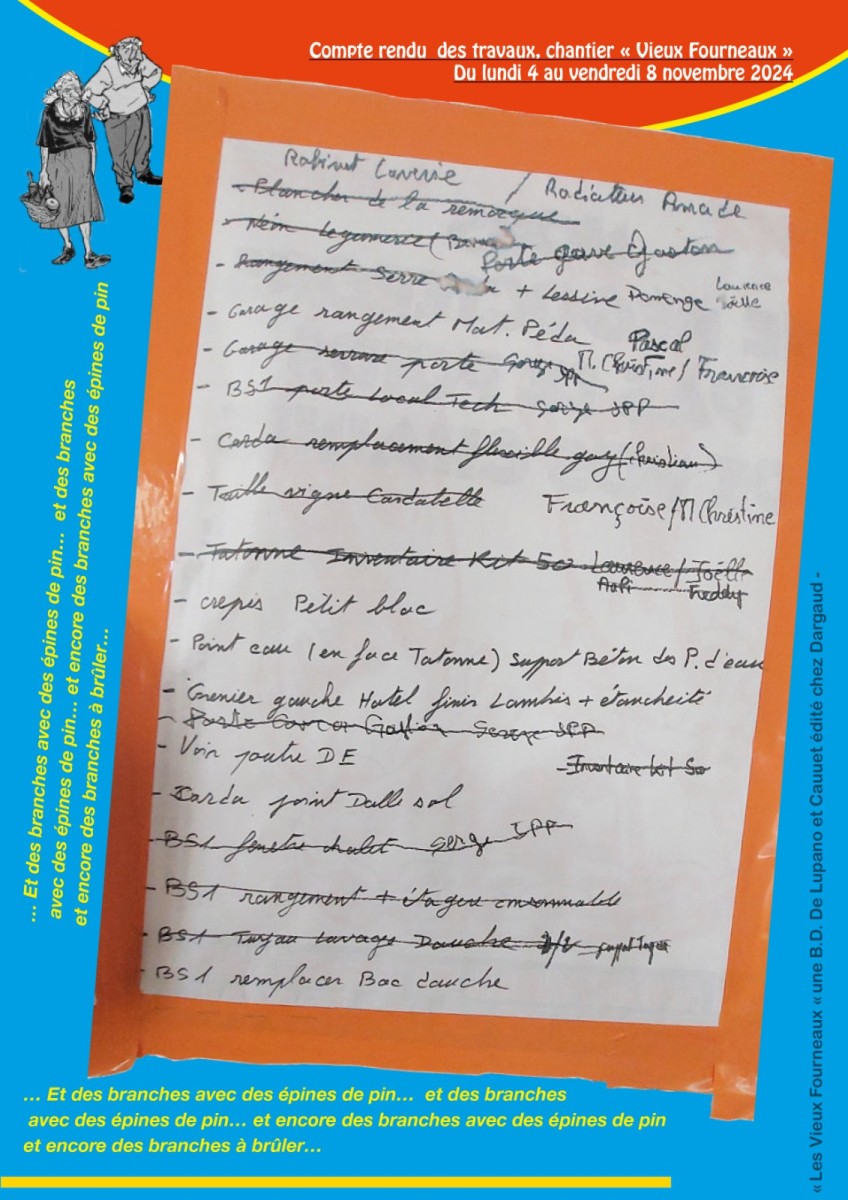 Compte rendu des travaux, chantier « Vieux Fourneaux »
Du lundi 4 au vendredi 8 novembre 2024
Robinet Laverie / Radiateur Amade
- Plancher de la remorque
- Néon legumerie ( Porte gave Gaston
- Rangement Serre + Lessive Domenge Laurence Joëlle
- Garage rangement Mat. Péda Pascal
- Garage serrure porte Serge JPP M. Christine / Françoise
- BS1 porte Local Tech Serge JPP
- Carda remplacement flexible gaz (Christian)
- Taille vigne Cardatelle Françoise / M Christine
- Tatonne Inventaire Kit 50 Laurence / Joëlle
Freddy
- crepis Petit bloc
- Point eau (en face Tatonne) Support Béton des P. d'eau
- Grenier gauche Hotel finir Lambris + étancheité
- Porte Serge JPP
- Voir poutre DE - Inventaire kit 50
- Carda joint Dalle sol
- BS1 fenetre chalet Serge JPP
- BS1 rangement + étagère consommable
- BS1 Tuyau Lavage Douche
- BS1 remplacer Bac douche
... Et des branches avec des épines de pin... et des branches
avec des épines de pin... et encore des branches avec des épines de pin
et encore des branches à brûler...
... Et des branches avec des épines de pin... et des branches
avec des épines de pin... et encore des branches avec des épines de pin
et encore des branches à brûler...
« Les Vieux Fourneaux « une B.D. De Lupano et Cauuet édité chez Dargaud -